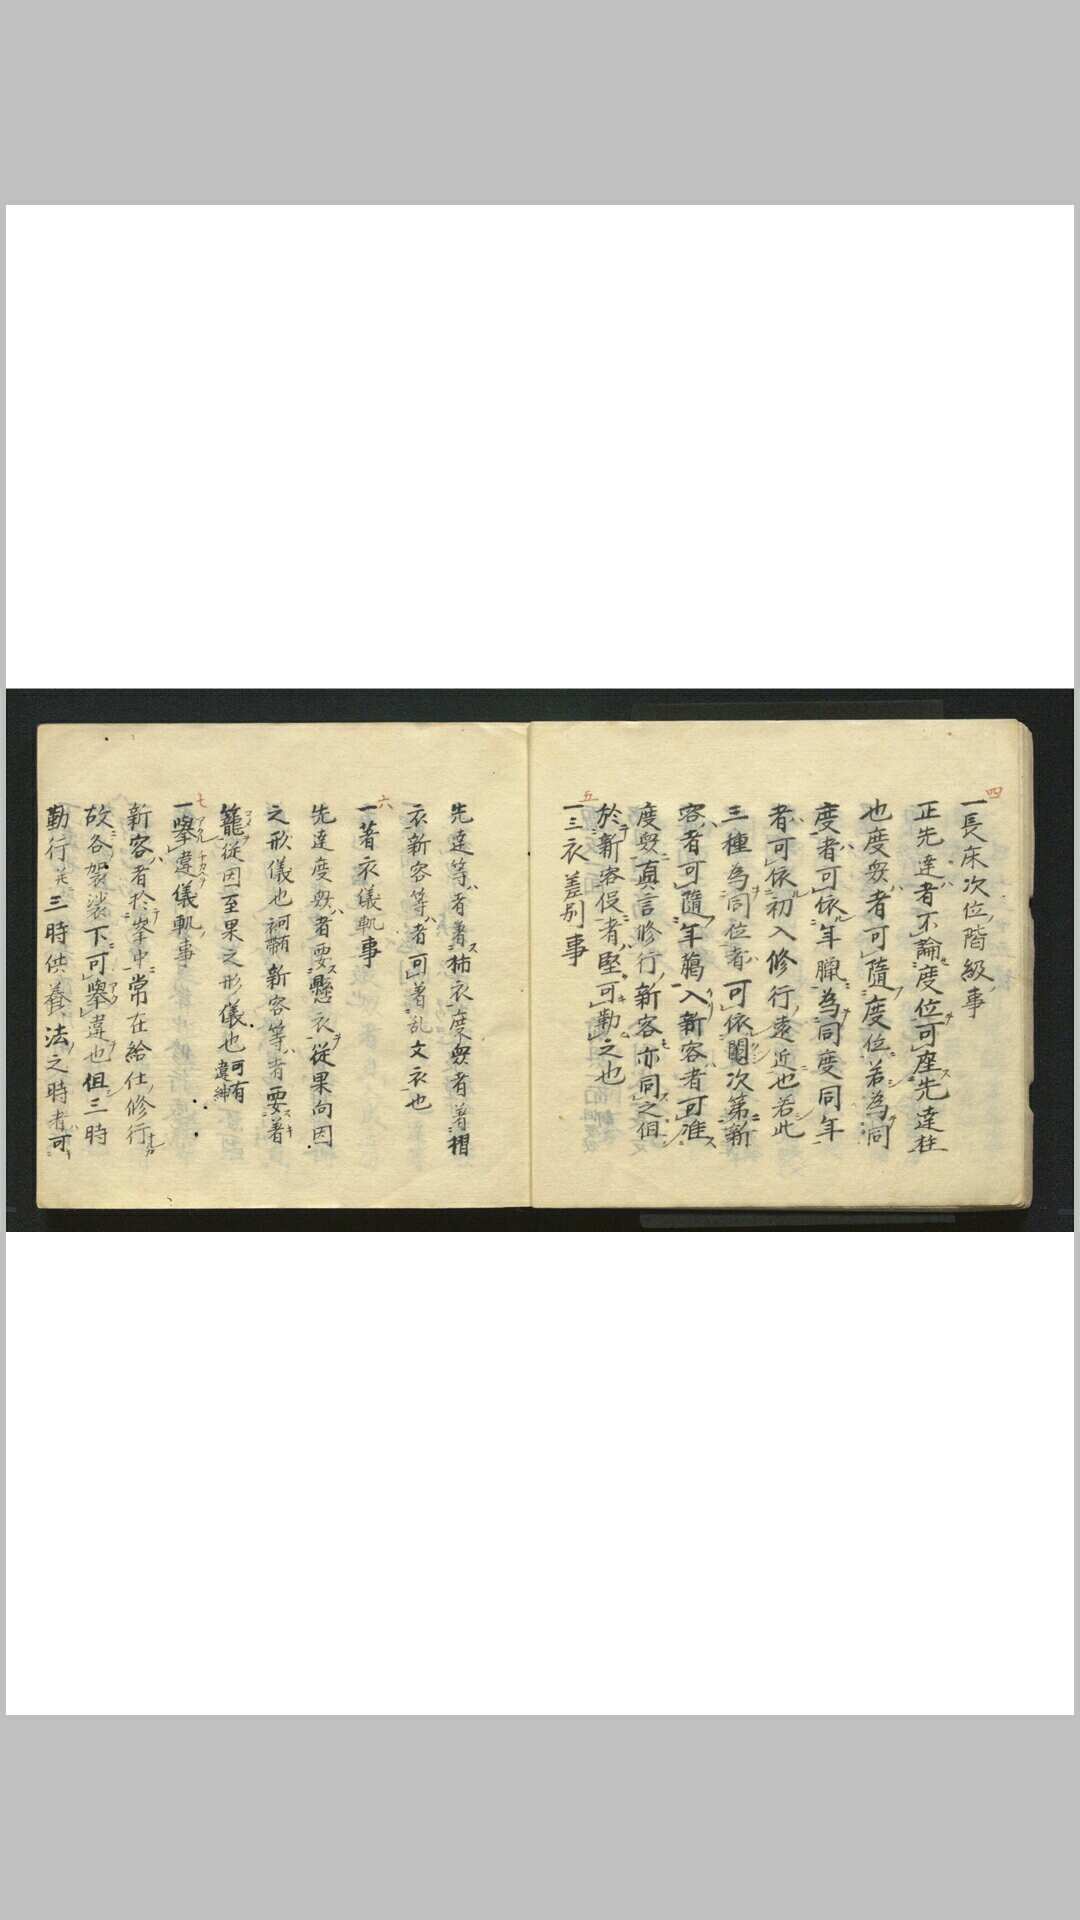 四
一長床次位階級事
正先達者不論度位可座先達柱
也度衆者可隨度位若為同
度者可依年臈為同度同年
者可依初入修行遠近也若此
三種為同位者可依闘次第新
客者可隨年臈入新客者可准
度衆真言修行新客亦同之但
於新客役者堅可勤之也
五
一三衣差別事
先達等者著柿衣度衆者著褶
衣新客等者可著乱文衣也
六
一著衣儀軌事
先達度衆者要懸衣従果向因
之形儀也 新客等者要著
籠従因至果之形儀也 可有違
七
一擧違儀軌事
新客者於峯中常在給仕修行
故各袈裟下可擧違也但三時
勤行 三時供養法之時者可